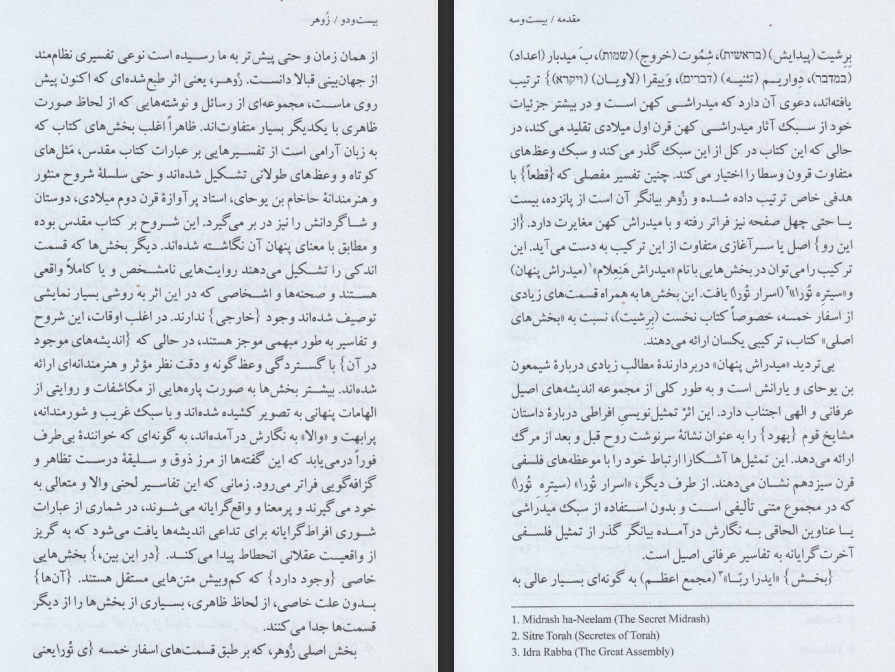 بیست‌ودو / زُوهر
از همان زمان و حتی پیش‌تر به ما رسیده است نوعی تفسیری نظام‌مند
از جهان‌بینی قبالا دانست. زُوهر، یعنی اثر طبع‌شده‌ای که اکنون پیش
روی ماست، مجموعه‌ای از رسائل و نوشته‌هایی که از لحاظ صورت
ظاهری با یکدیگر بسیار متفاوت‌اند. ظاهراً اغلب بخش‌های کتاب که
به زبان آرامی است از تفسیرهایی بر عبارات کتاب مقدس، مَثل‌های
کوتاه و وعظ‌های طولانی تشکیل شده‌اند و حتی سلسلهٔ شروح منثور
و هنرمندانهٔ حاخام بن یوحای، استاد پرآوازهٔ قرن دوم میلادی، دوستان
و شاگردانش را نیز در بر می‌گیرد. این شروح بر کتاب مقدس بوده
و مطابق با معنای پنهان آن نگاشته شده‌اند. دیگر بخش‌ها که قسمت
اندکی را تشکیل می‌دهند روایت‌هایی نامشخص و یا کاملاً واقعی
هستند و صحنه‌ها و اشخاصی که در این اثر به روشی بسیار نمایشی
توصیف شده‌اند وجود {خارجی} ندارند. در اغلب اوقات، این شروح
و تفاسیر به طور مبهمی موجز هستند، در حالی که {اندیشه‌های موجود
در آن} با گستردگی وعظ‌گونه و دقت نظر مؤثر و هنرمندانه‌ای ارائه
شده‌اند. بیشتر بخش‌ها به صورت پاره‌هایی از مکاشفات و روایتی از
الهامات پنهانی به تصویر کشیده شده‌اند و با سبک غریب و شورمندانه،
پرابهت و «والا» به نگارش درآمده‌اند، به گونه‌ای که خوانندهٔ بی‌طرف
فوراً درمی‌یابد که این گفته‌ها از مرز ذوق و سلیقهٔ درست تظاهر و
گزافه‌گویی فراتر می‌رود. زمانی که این تفاسیر لحنی والا و متعالی به
خود می‌گیرند و پرمعنا و واقع‌گرایانه می‌شوند، در شماری از عبارات
شوری افراط‌گرایانه برای تداعی اندیشه‌ها یافت می‌شود که به گریز
از واقعیت عقلانی انحطاط پیدا می‌کند. {در این بین،} بخش‌هایی
خاصی {وجود دارد} که کم‌وبیش متن‌هایی مستقل هستند. {آن‌ها}
بدون علت خاصی، از لحاظ ظاهری، بسیاری از بخش‌ها را از دیگر
قسمت‌ها جدا می‌کنند.
بخش اصلی زُوهر، که بر طبق قسمت‌های اسفار خمسه {ی تُورا یعنی
مقدمه / بیست‌وسه
بِرِشیت (پیدایش) (בראשית)، شِمُوت (خروج) (שמות)، بَ میدبار (اعداد)
(במדבר)، دِواریم (تثنیه) (דברים)، وَییقرا (لاویان) (ויקרא)} ترتیب
یافته‌اند، دعوی آن دارد که میدراشی کهن است و در بیشتر جزئیات
خود از سبک آثار میدراشی کهن قرن اول میلادی تقلید می‌کند، در
حالی که این کتاب در کل از این سبک گذر می‌کند و سبک وعظ‌های
متفاوت قرون وسطا را اختیار می‌کند. چنین تفسیر مفصلی که {قطعاً} با
هدفی خاص ترتیب داده شده و زُوهر بیانگر آن است از پانزده، بیست
یا حتی چهل صفحه نیز فراتر رفته و با میدراش کهن مغایرت دارد. {از
این رو} اصل یا سرآغازی متفاوت از این ترکیب به دست می‌آید. این
ترکیب را می‌توان در بخش‌هایی با نام «میدراش هَنِعلام»۱ (میدراش پنهان)
و «سیترِه تُورا»۲ (اسرار تُورا) یافت. این بخش‌ها به همراه قسمت‌های زیادی
از اسفار خمسه، خصوصاً کتاب نخست (بِرِشیت)، نسبت به «بخش‌های
اصلی» کتاب، ترکیبی یکسان ارائه می‌دهند.
بی‌تردید «میدراش پنهان» دربردارندهٔ مطالب زیادی دربارهٔ شیمعون
بن یوحای و یارانش است و به طور کلی از مجموعه اندیشه‌های اصیل
عرفانی و الهی اجتناب دارد. این اثرْ تمثیل‌نویسیِ افراطی دربارهٔ داستان
مشایخ قوم {یهود} را به عنوان نشانهٔ سرنوشت روح قبل و بعد از مرگ
ارائه می‌دهد. این تمثیل‌ها آشکارا ارتباط خود را با موعظه‌های فلسفی
قرن سیزدهم نشان می‌دهند. از طرف دیگر، «اسرار تُورا» (سیترِه تُورا)
که در مجموع متنی تألیفی است و بدون استفاده از سبک میدراشی
یا عناوین الحاقی به نگارش درآمده بیانگر گذر از تمثیل فلسفی
آخرت‌گرایانه به تفاسیر عرفانی اصیل است.
{بخش} «ایدرا ربّا»۳ (مجمع اعظم) به گونه‌ای بسیار عالی به
1. Midrash ha-Neelam (The Secret Midrash)
2. Sitre Torah (Secretes of Torah)
3. Idra Rabba (The Great Assembly)